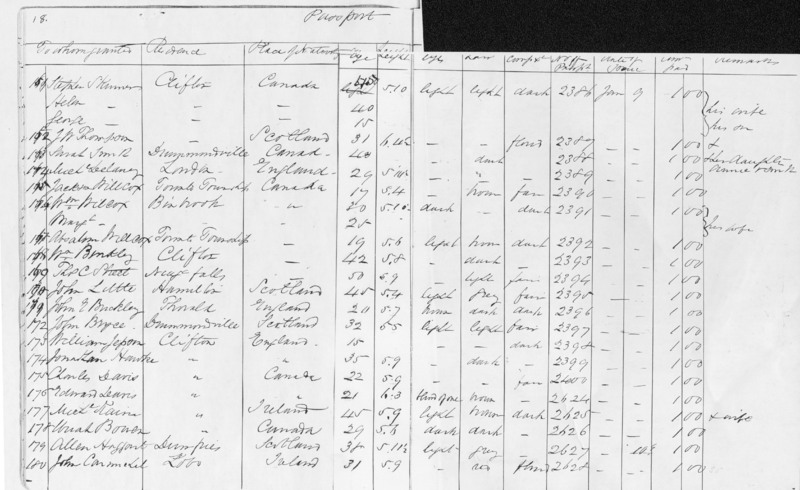 18. Passport
To whom granted Residence Place of Nativity Age Height eyes hair compxn No of Passpt date of Issue sum paid remarks
Stephen Clifton Canada 5.10 light light dark 2386 Jan 9 1 00
Helen " " 40 his wife
George " — 15 his son
J W Thompson " Scotland 31 — — florid 2387 — — 1 00
Sarah Drummondville Canada 40 — dark — 2388 — — 1 00 & her daughter
London England 29 — " — 2389 — — 1 00
Jackson Willcox Toronto Township Canada 19 5.4 — brown fair 2390 — — 1 00
Wm Wilcox Binbrook " 20 5.10 dark — dark 2391 — — 1 00
Margt — — 28 his wife
Absalom Willcox Toront Township — 19 5.6 light brown dark 2392 — — 1 00
Wm Binkley Clifton — 42 5.8 — dark — 2393 — — 1 00
Thos C Street Niag falls — 50 5.9 — light fair 2394 — — 1 00
John Little Hamilton Scotland 45 5.4 light grey fair 2395 — — 1 00
John Thorald England 20 5.7 brown dark dark 2396 — — 1 00
172 Tom Bryce Drummondville Scotland 32 light light fair 2397 — — 1 00
173 William Jepson Clifton England 15 — — dark 2398 — — 1 00
174 Jonathan " " 35 5.9 — dark — 2399 — — 1 00
175 Charles Davis " Canada 22 5.9 — — fair 2400 — — 1 00
176 Edward Davis " " 21 6.3 brown — 2624 — — 1 00
177 " Ireland 45 5.9 light brown dark 2625 — — 1 00 & wife
178 Bowen " Canada 29 5.6 dark dark — 2626 — — 1 00
179 Allen Haggart Dumfries Scotland 38 5.11½ light grey — 2627 — 10th 1 00
180 John Carmichel Lobo Ireland 31 5.9 — red florid 2628 — — 1 00